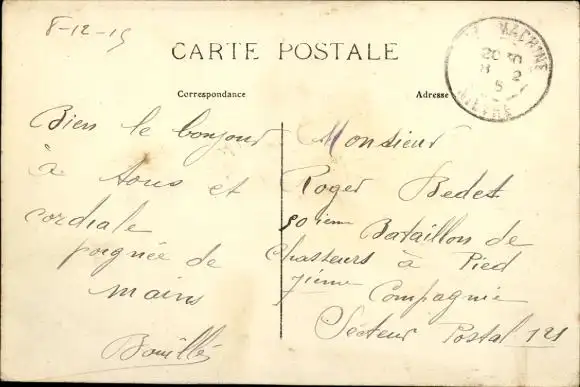 8-12-15
CARTE POSTALE
Correspondance
Adresse
LA MACHINE
20 30
8 12
15
NIEVRE
Bien le bonjour
à tous et
cordiale
poignée de
mains
Bouillé
Monsieur
Roger Bedest
50ième Bataillon de
Chasseurs à Pied
7ième Compagnie
Secteur Postal 121